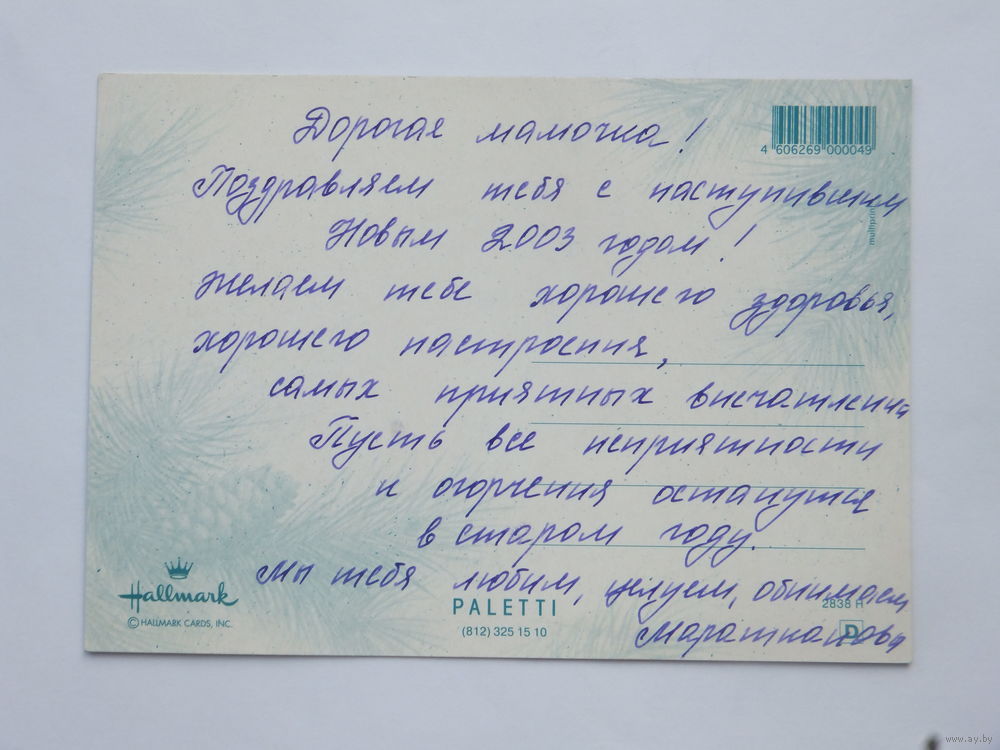 Дорогая мамочка!
4 606269 000049
Поздравляем тебя с наступившим
multiprint
Новым 2003 годом!
Желаем тебе хорошего здоровья,
хорошего настроения,
самых приятных впечатлений
Пусть все неприятности
и огорчения останутся
в старом году.
Мы тебя любим, целуем, обнимаем
Hallmark
© HALLMARK CARDS, INC.
PALETTI
(812) 325 15 10
2838 H
D
www.ay.by